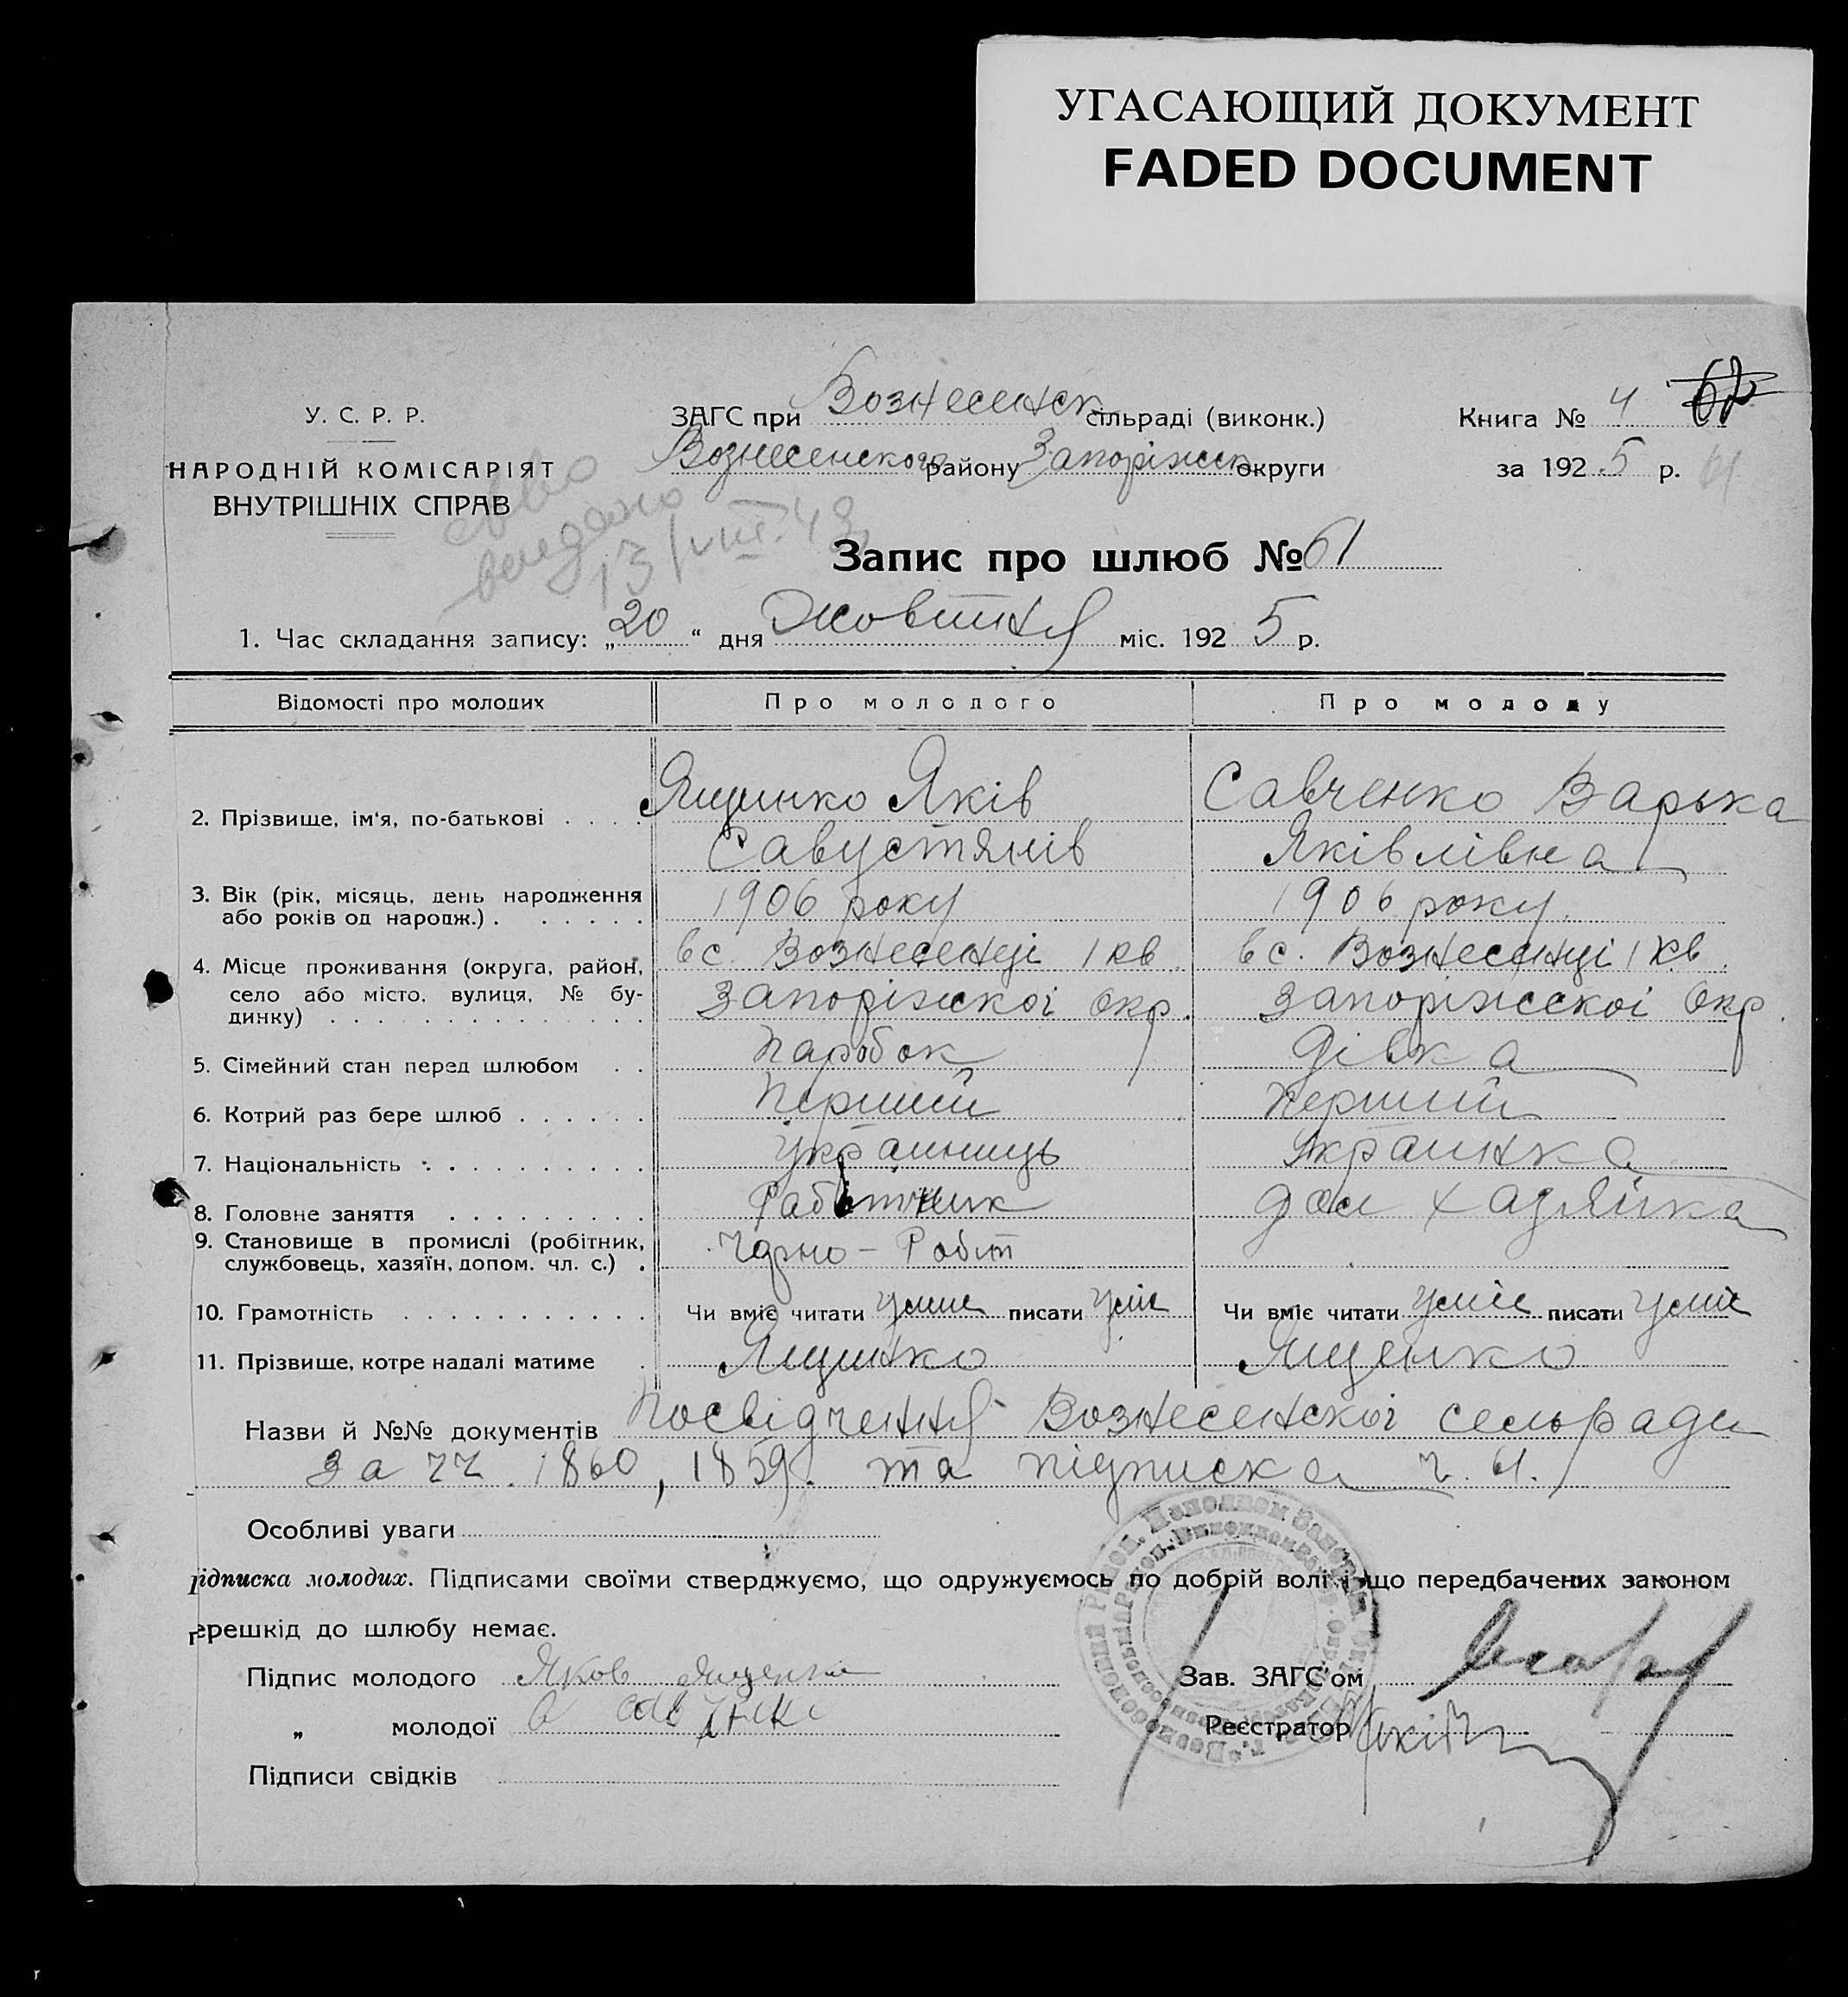 УГАСАЮЩИЙ ДОКУМЕНТ
FADED DOCUMENT
У. С. Р. Р.
НАРОДНІЙ КОМІСАРІЯТ
ВНУТРІШНІХ СПРАВ
ЗАГС при Вознесенск сільраді (виконк.)
Вознесенского району Запоріжск округи
Книга № 4
за 1925 р. 61
13/VIII.43
Запис про шлюб № 61
1. Час складання запису: „20“ дня Жовтня міс. 1925 р.
Відомості про молодих
Про молодого
Про молоду
2. Прізвище, ім'я, по-батькові . . . .
Ящинко Яків
Савустянів
Савченко Варька
Яківлівна
3. Вік (рік, місяць, день народження
або років од народж.) . . . . . .
1906 року
1906 року
4. Місце проживання (округа, район,
село або місто, вулиця, № бу-
динку) . . . . . . . . . . . . .
в с. Вознесенці 1 кв
Запоріжскоі Окр.
в с. Вознесенці 1 кв.
Запоріжскоі Окр.
5. Сімейний стан перед шлюбом . .
Паробок
Дівка
6. Котрий раз бере шлюб . . . . . .
Перший
Перший
7. Національність . . . . . . . . . .
Украиниць
Украинка
8. Головне заняття . . . . . . . . .
Работник
дом хазяйка
9. Становище в промислі (робітник,
службовець, хазяїн, допом. чл. с.) .
Чорно-Робіт
10. Грамотність . . . . . . . . . . .
Чи вміє читати Уміє писати Уміє
Чи вміє читати Уміє писати Уміє
11. Прізвище, котре надалі матиме .
Ящинко
Ященко
Назви й №№ документів Посвідчення Вознесенскоі сельради
За чч. 1860, 1859. та підписка ч. 61.
Особливі уваги
ідписка молодих. Підписами своїми стверджуємо, що одружуємось по добрій волі і що передбачених законом
ерешкід до шлюбу немає.
Підпис молодого Яков Ященко
„ молодої
Підписи свідків
Зав. ЗАГС'ом
Реєстратор